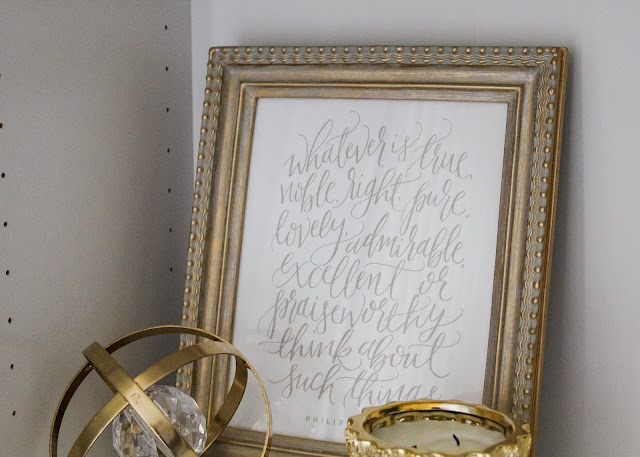 whatever is true,
noble, right, pure,
lovely, admirable,
excellent or
praiseworthy
think about
such things